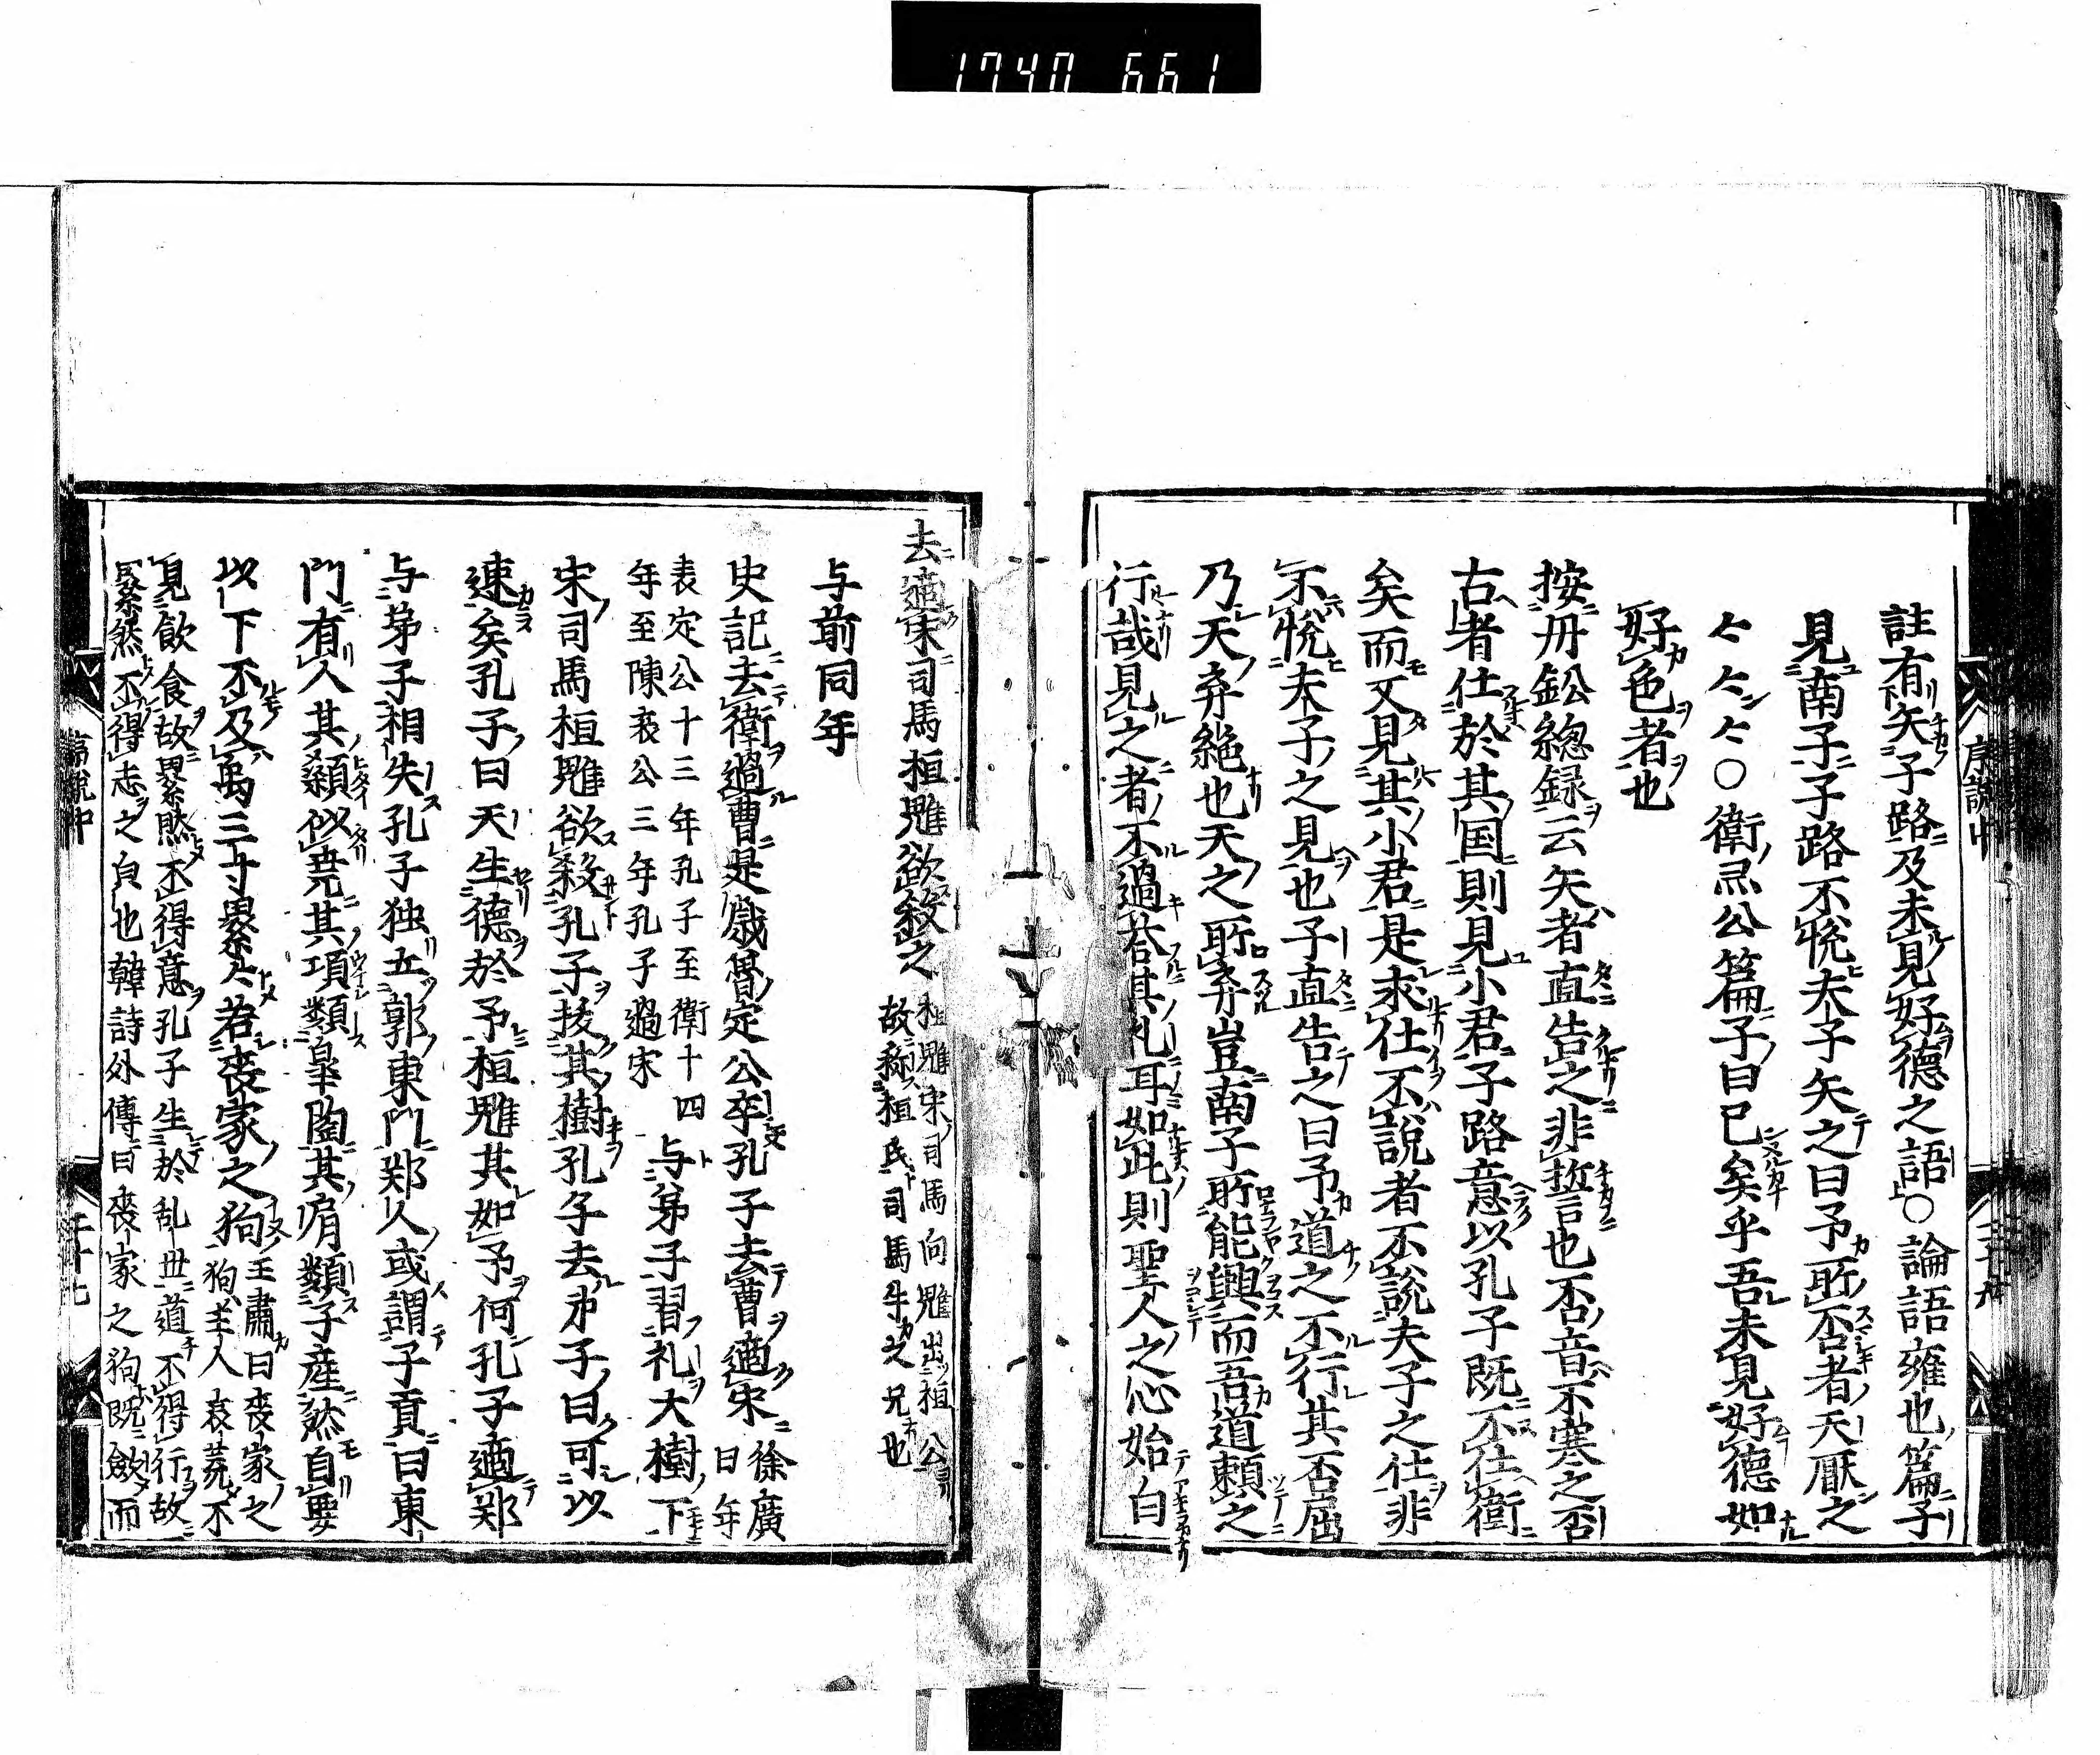 1740 661
序説中
註有矢子路及未見好德之語○論語雍也篇子
見南子子路不悦夫子矢之曰予所否者天厭之
〻〻〻○衛灵公篇子曰已矣乎吾未見好德如
好色者也
按丹鈆総録云矢者直告之非誓言也否音不寒之否
古者仕於其国則見小君子路意以孔子既不仕衛
矣而又見其小君是求仕不説者不説夫子之仕非
不悦夫子之見也子直告之曰予道之不行其否屈
乃天弃絶也天之所弃豈南子所能興而吾道頼之
行哉見之者不過荅其礼耳如此則聖人之心始白
去適宋司馬桓魋欲殺之
桓魋宋司馬向魋出桓公
故称桓氏司馬牛之兄也
与前同年
史記去衛過曹是歳魯定公卒孔子去曹適宋
徐廣
曰年
表定公十三年孔子至衛十四
年至陳哀公三年孔子過宋
与弟子習礼大樹下
宋司馬桓魋欲殺孔子抜其樹孔子去弟子曰可以
速矣孔子曰天生德於予桓魋其如予何孔子適郑
与弟子相失孔子独立郭東門郑人或謂子貢曰東
門有人其顙似尭其項類皐陶其肩類子産然自要
以下不及禹三寸累〻若喪家之狗
王肅曰喪家之
狗主人哀荒不
見飲食故累然不得意孔子生於乱世道不得行故
累然不得志之皃也韓詩外傳曰喪家之狗既斂而
序説中